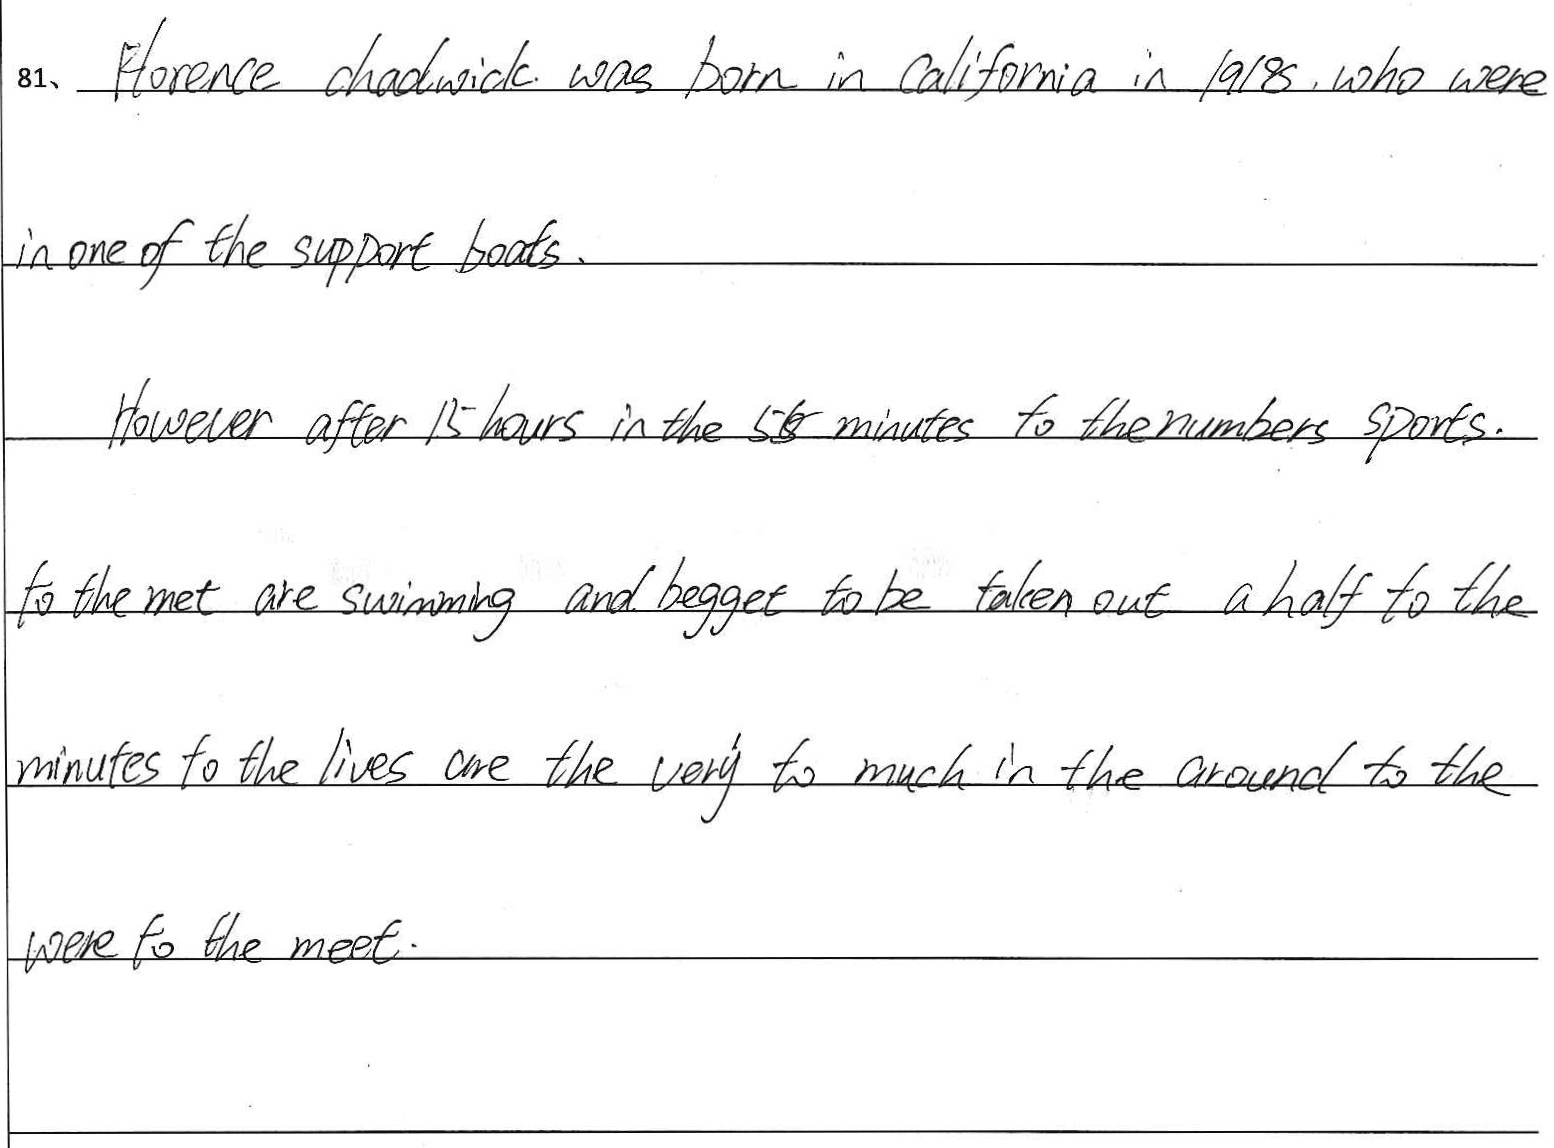 81、 Florence chadwick. was born in California in 1918. who were
in one of the support boats.
However after 15 hours in the 55 minutes to the numbers sports.
to the met are swimming and begget to be taken out a half to the
minutes to the lives are the very to much in the around to the
were to the meet.